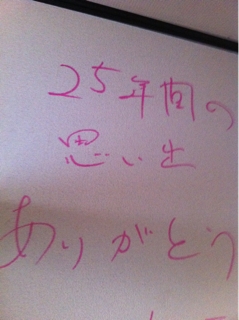 25年間の
思い出
ありがとう